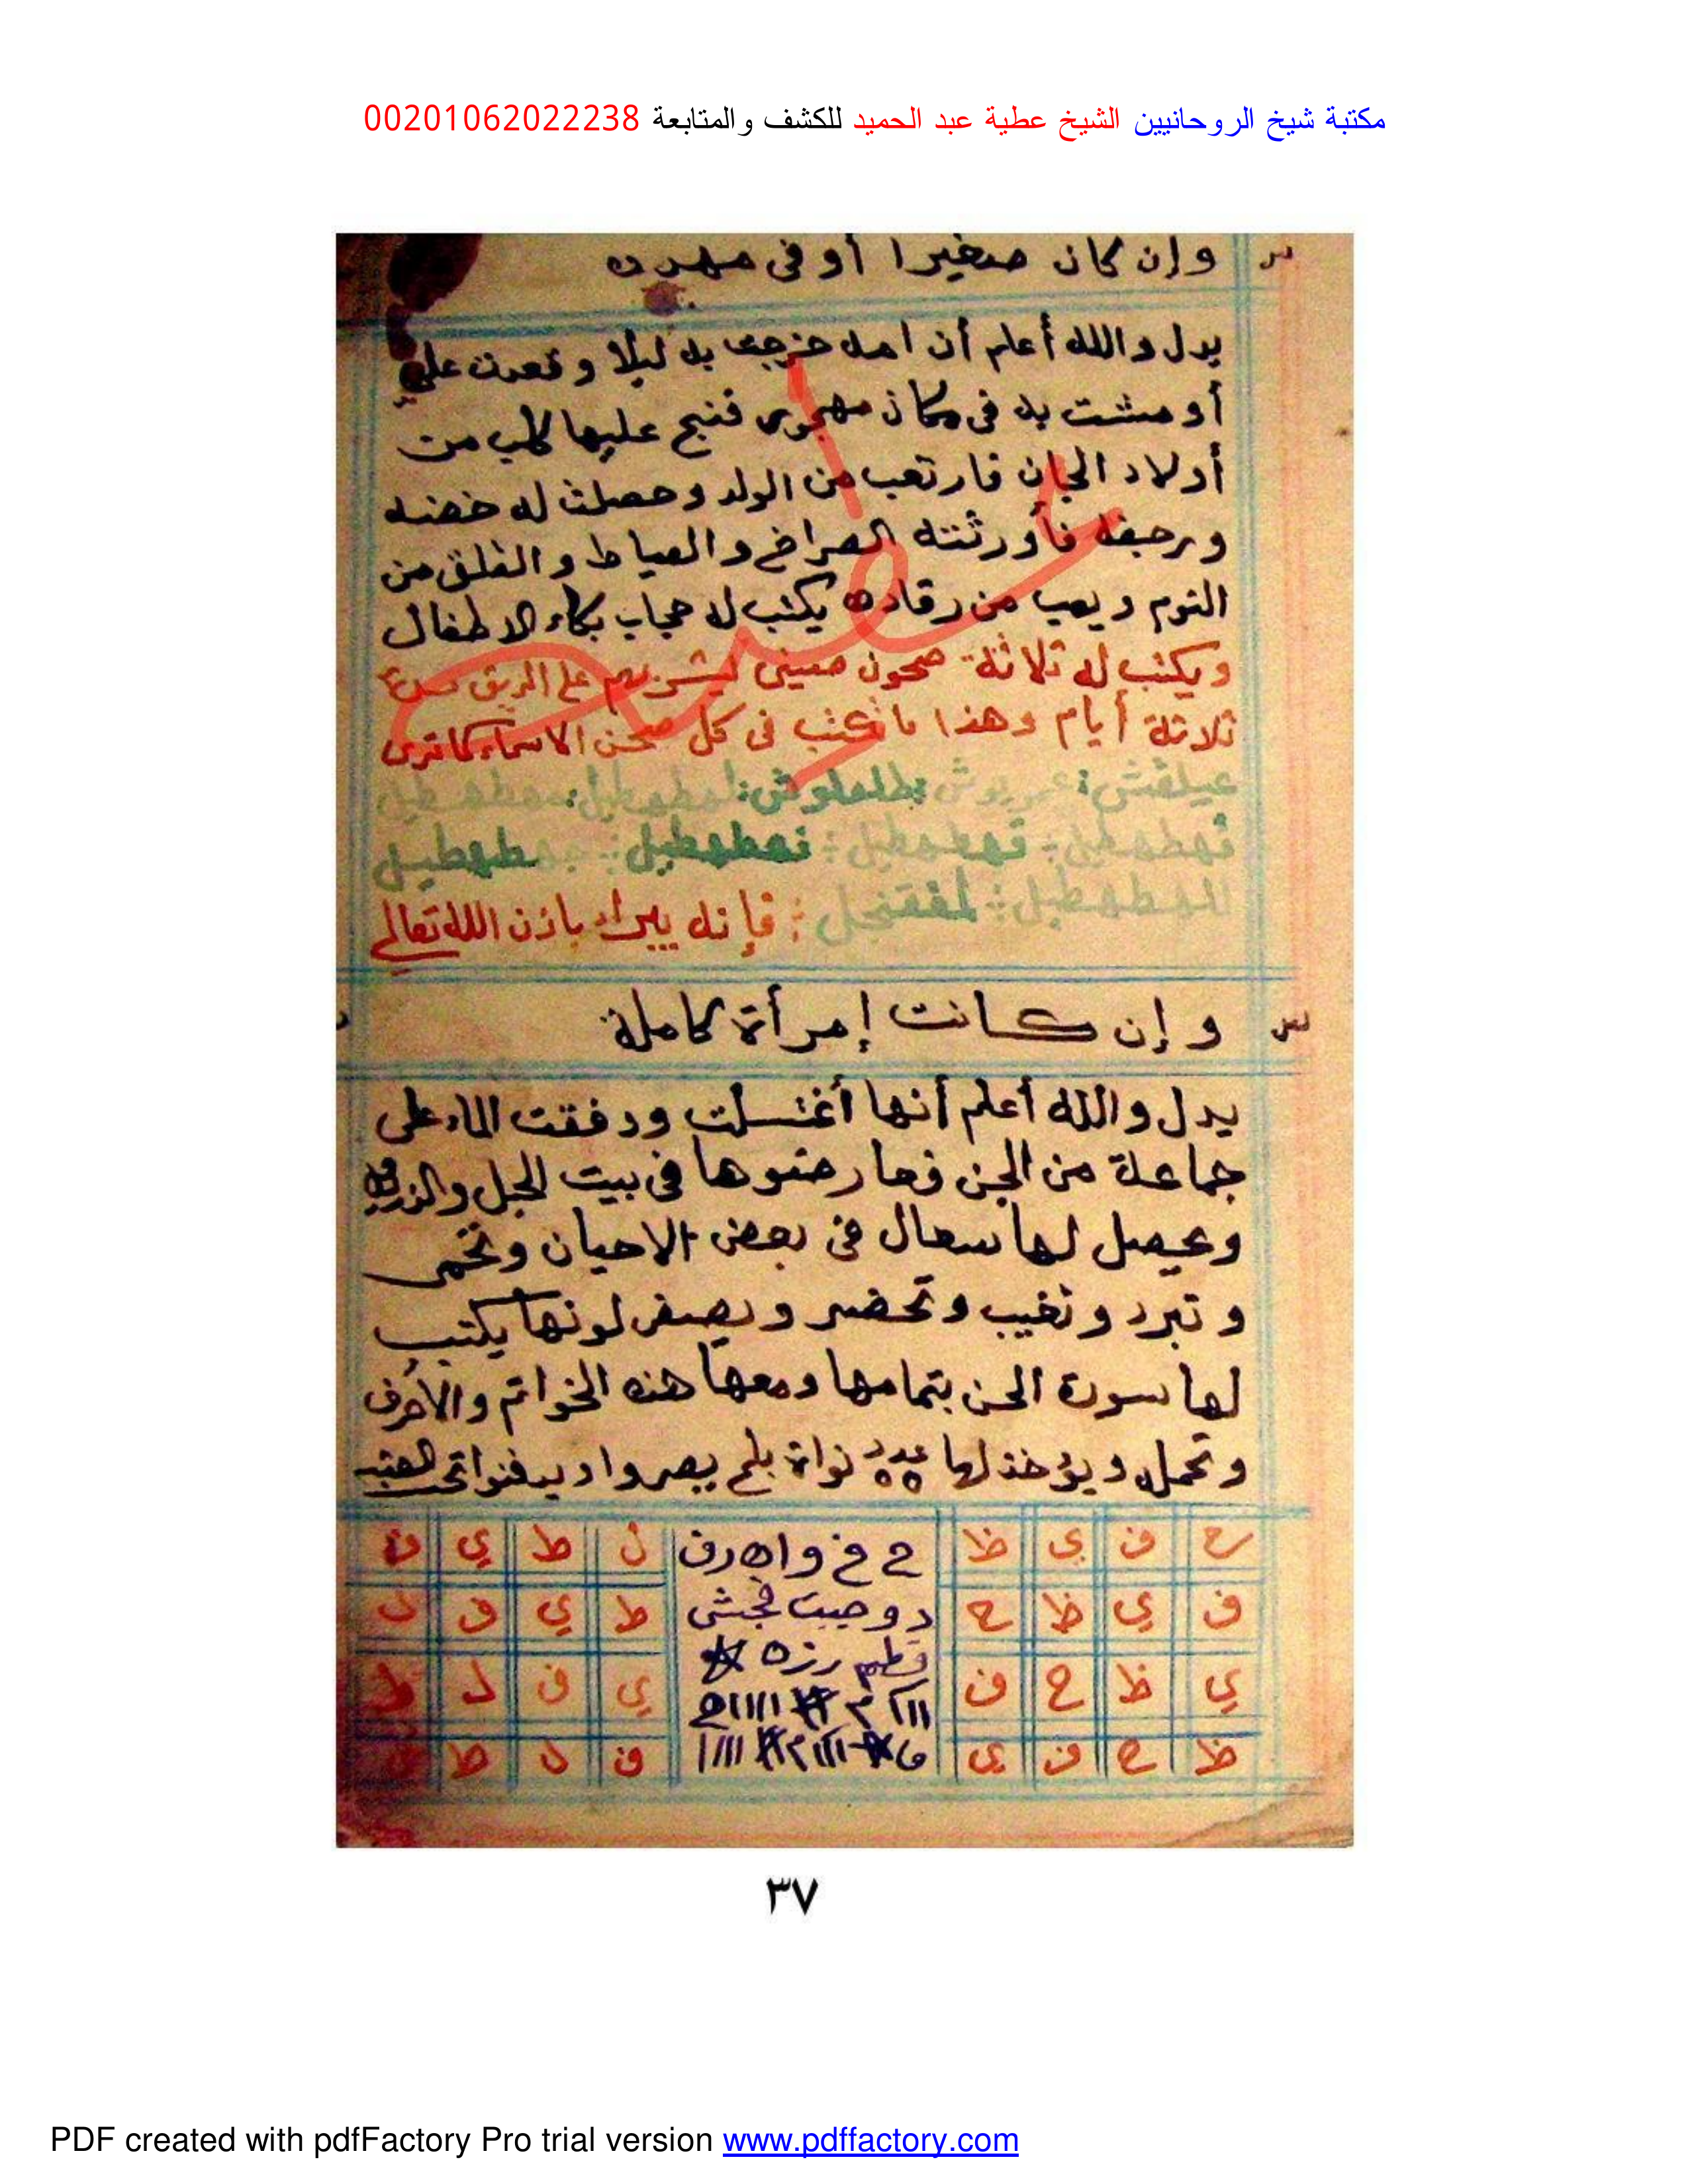 مكتبة شيخ الروحانيين الشيخ عطية عبد الحميد للكشف والمتابعة 00201062022238
وإن كان صغيرا أو في مهده
يدل والله أعلم أن امه خرجت به ليلا وقعدت على
أو مشت به فى مكان مهجور فنبح عليها كلب من
أولاد الجان فارتعب من الولد وحصلت له خضه
ورجفه فأورثته الصراخ والعياط والقلق من
النوم ويهب من رقاده يكتب له حجاب بكاء الاطفال
ويكتب له ثلاثة صحون صينى ليشربهم على الريق
ثلاثة أيام وهذا ما تكتب فى كل صحن الاسماء كما ترى
عيلقش
لمقفنجل فإنه يبراء باذن الله تعالى
وإن كانت إمرأة كاملة
يدل والله أعلم أنها أغتسلت ودفقت الماء على
جماعة من الجن فعارضوها فى بيت الحبل
ويحصل لها سعال فى بعض الاحيان وتحمى
وتبرد وتغيب وتحضر ويصفر لونها يكتب
لها سورة الجن بتمامها ومعها هذه الخواتم والأحرف
وتحمله ويؤخذ لها عدد ٥٥ نواة بلح يصروا ويدفنوا تحت العتبه
ح ف ي ظ ح خ و ا ه ر ف ل ط ي ف
ف ي ظ ح ط ي ف ل
ي ظ ح ف ي ف ل ط
ظ ح ف ي ف ل ط
٣٧
PDF created with pdfFactory Pro trial version www.pdffactory.com